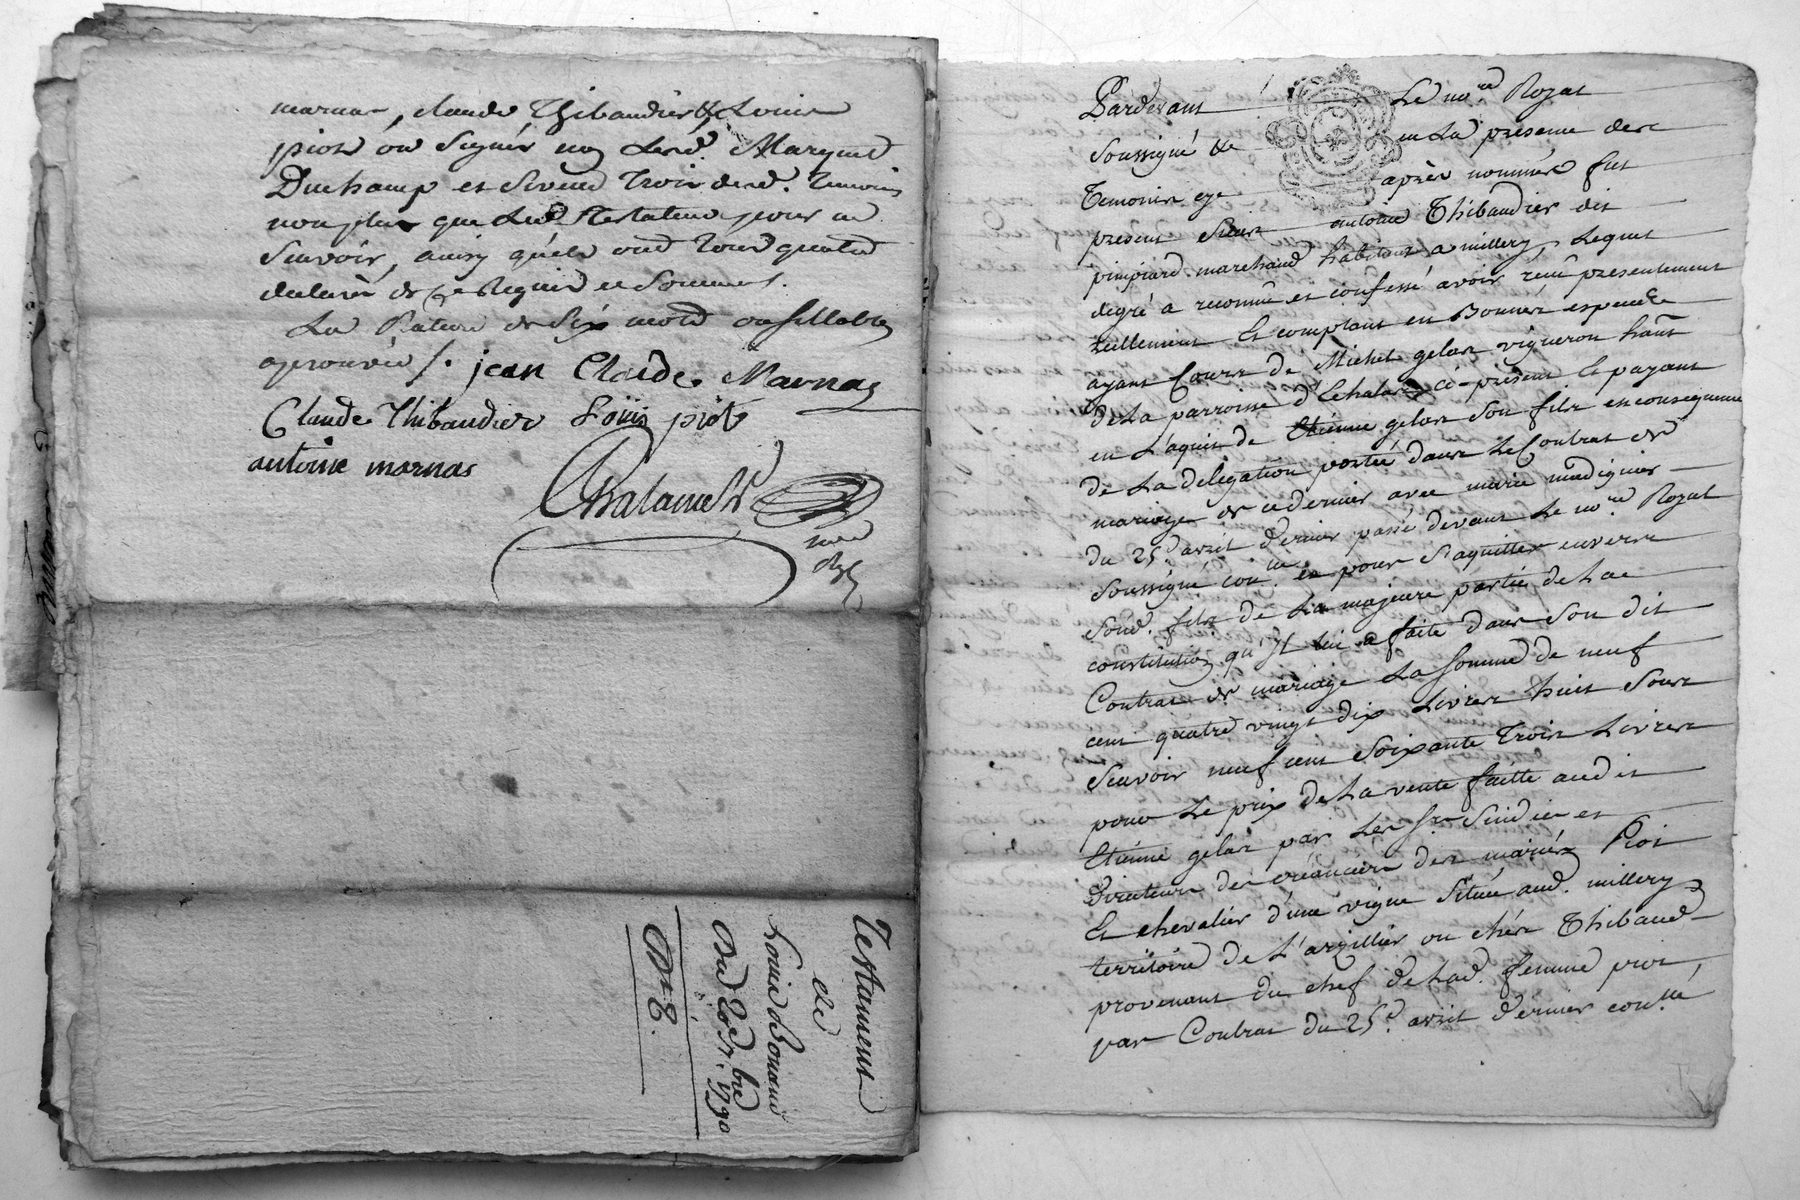 marnas, claude Thibaudier & Louis
piot ont Signés non Lesd. Marguet
Duchamp et Siveud Trois desd. Temoins
non plus que Led. Testateur pour ne
Scavoir, ainsy qu'els ont Tous quatre
declaré de ce Requis et Sommes.
La Rature de Six mots ou sillables
aprouvée /. jean Claude Marnas
Claude Thibaudier Loüis piot
antoine marnas
Testament
de
Louis Bonand
Du 20 Xbre 1790
Pardevant Le nore Royal
Soussigné & en La présence des
Temoins cy après nommés fut
present Sieur antoine Thibaudier dit
pimpiard marchand habitant a millery, Lequel
degré a reconnû et confessé avoir reçû présentement
reellement Et comptant en Bonnes especes
ayant Cours de Michel gelas vigneron haut
de La parroisse d'Echalas ci-présent Le payant
en L'aquit de Etienne gelas Son fils en conséquence
de La délégation portée dans Le Contrat de
mariage de ce dernier avec marie
du 25e avril dernier passé devant Le nore Royal
Soussigné et pour S'aquitter envers
Sond. fils de La majeure partie de La
constitution qu'Il lui a faite dans Son dit
Contrat de mariage La Somme de neuf
cent quatre vingt dix Livres huit Sous
Scavoir neuf cent Soixante Trois Livres
pour Le prix de La vente faitte audit
Etienne gelas par Les Srs Sindic et
Directeurs des créanciers des mariés Piot
Et chevalier d'une vigne Située aud. millery
territoire de L'argillier ou chés Thibaud
provenant du chef de Lad. femme piot
par Contrat du 25e avril dernier